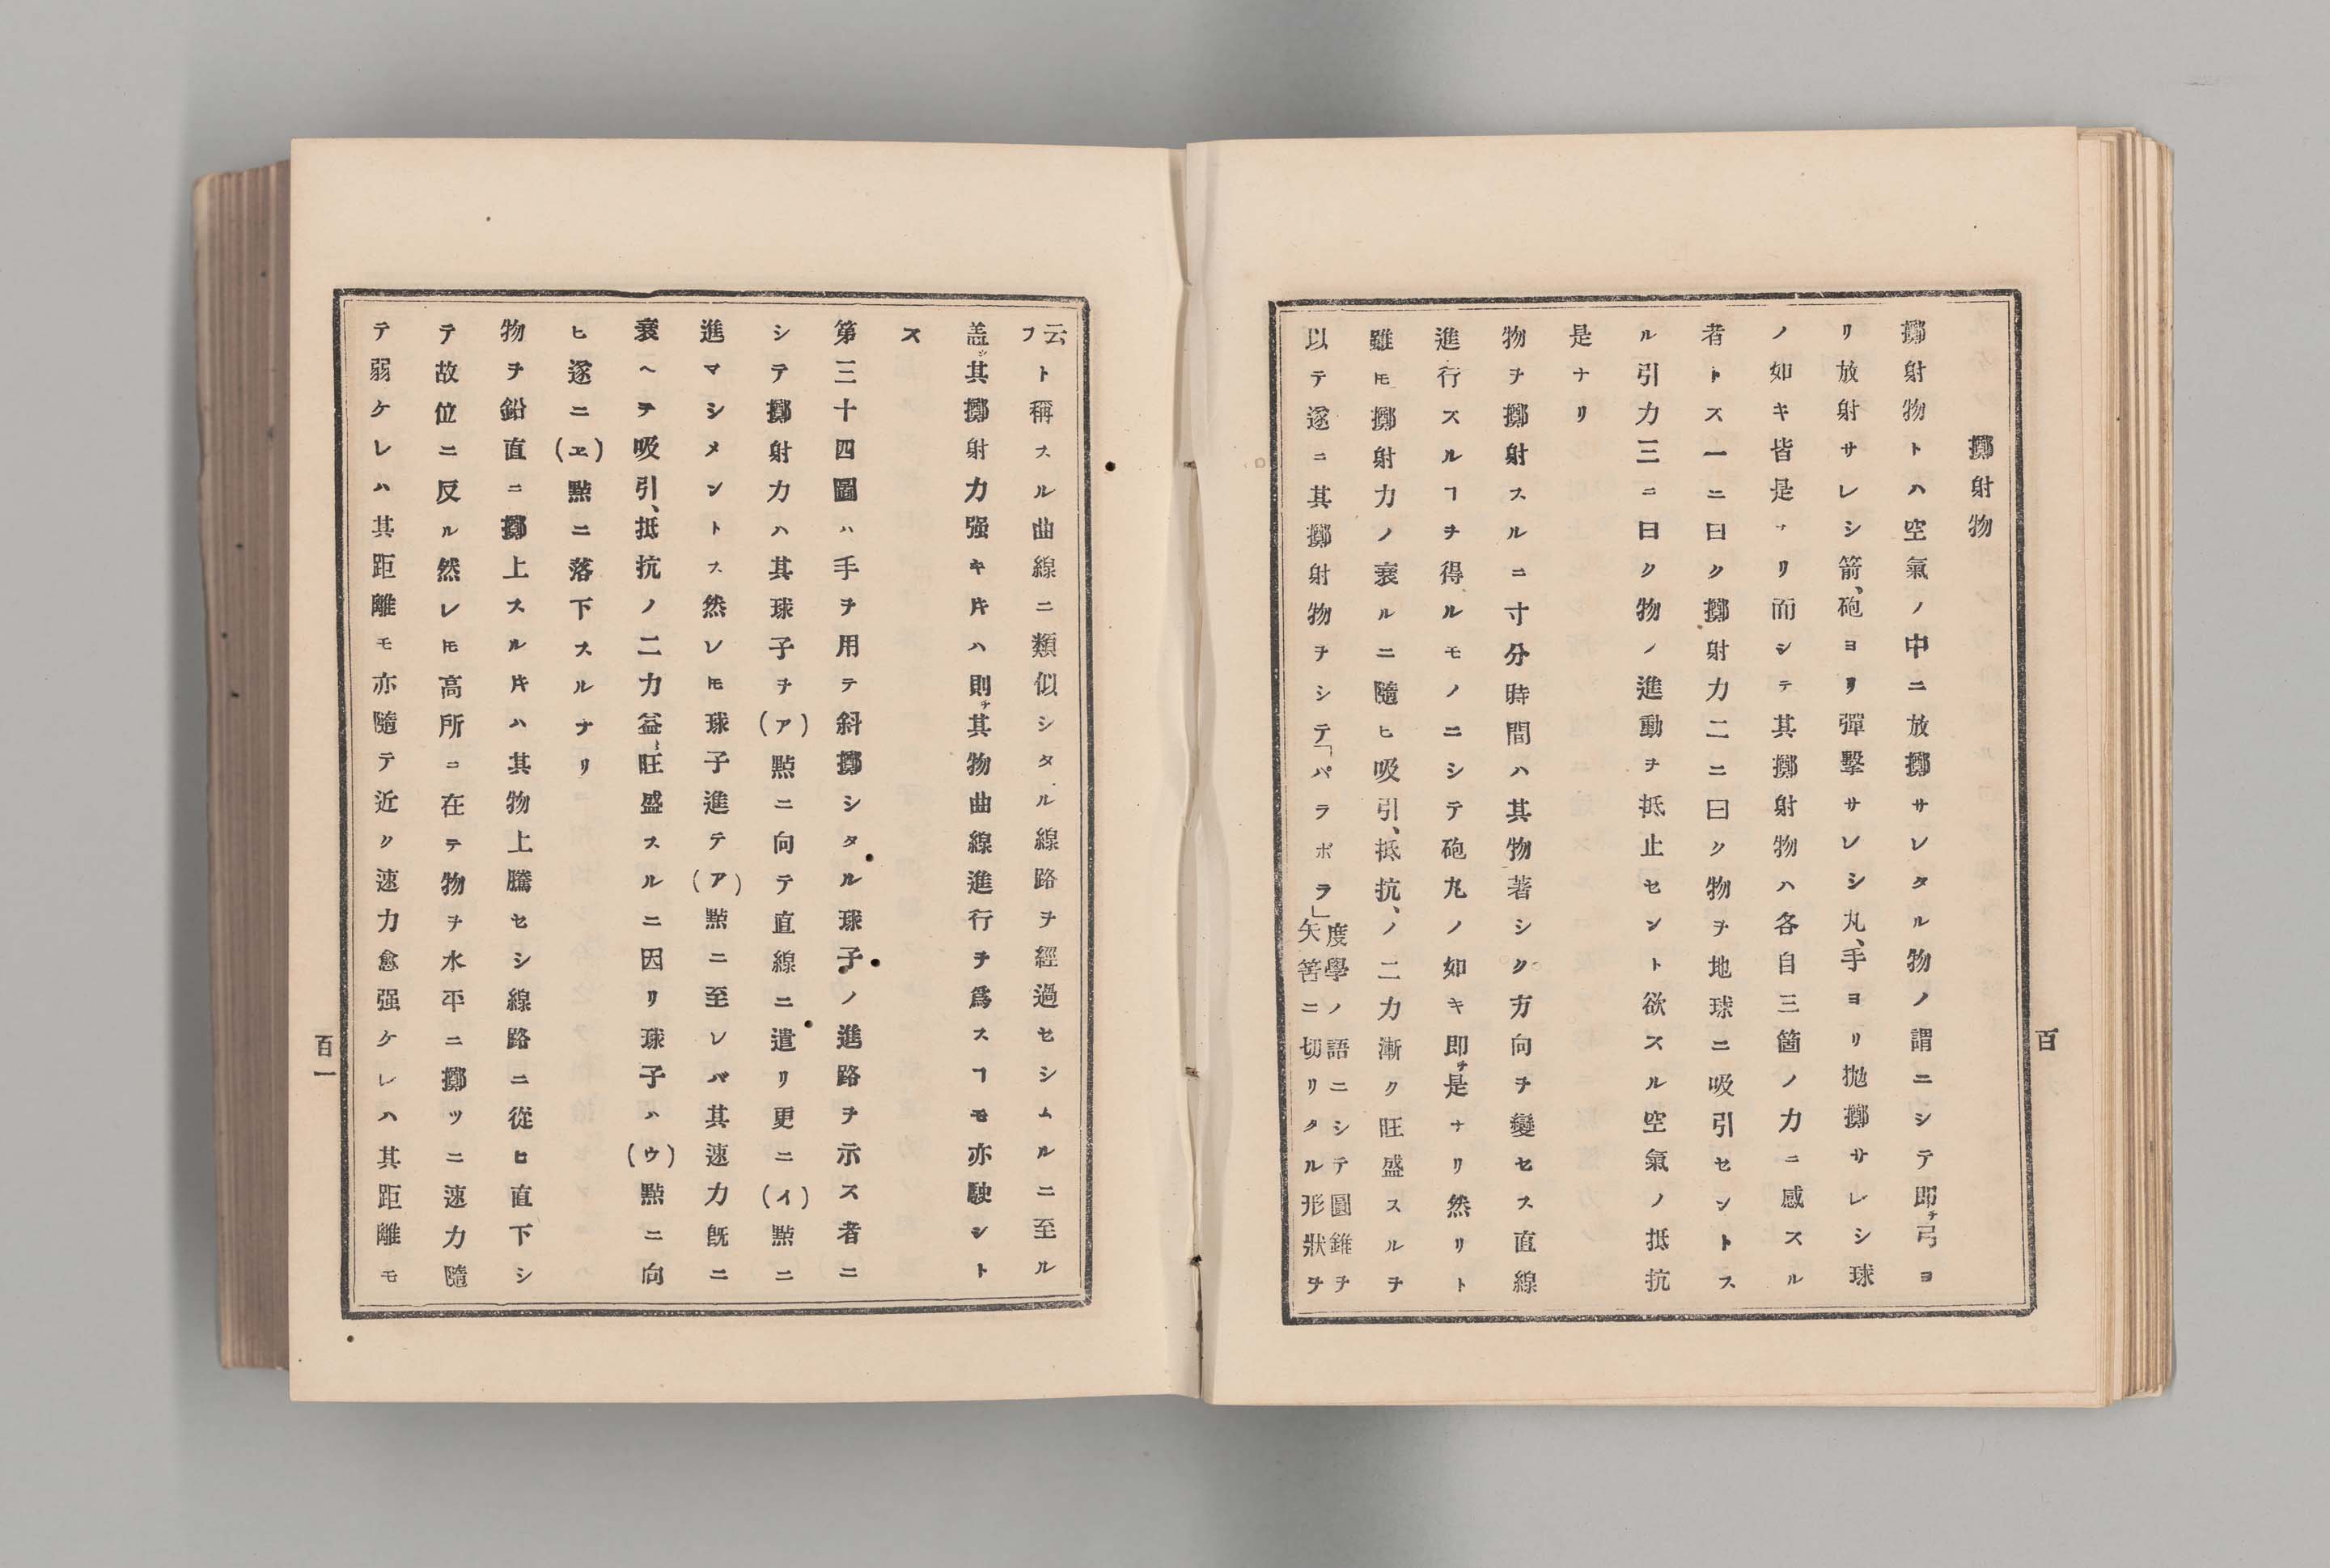 擲射物
擲射物トハ空氣ノ中ニ放擲サレタル物ノ謂ニシテ即チ弓ヨ
リ放射サレシ箭、砲ヨリ彈擊サレシ丸、手ヨリ拋擲サレシ球
ノ如キ皆是ナリ而シテ其擲射物ハ各自三箇ノ力ニ感スル
者トス一ニ曰ク擲射力二ニ曰ク物ヲ地球ニ吸引セントス
ル引力三ニ曰ク物ノ進動ヲ抵止セント欲スル空氣ノ抵抗
是ナリ
物ヲ擲射スルニ寸分時間ハ其物著シク方向ヲ變セス直線
進行スルヿヲ得ルモノニシテ砲丸ノ如キ即チ是ナリ然リト
雖𪜈擲射力ノ衰ルニ隨ヒ吸引、抵抗、ノ二力漸ク旺盛スルヲ
以テ遂ニ其擲射物ヲシテ「パラボラ」度學ノ語ニシテ圓錐ヲ
矢筈ニ切リタル形狀ヲ
百
云
フト稱スル曲線ニ類似シタル線路ヲ經過セシムルニ至ル
盖シ其擲射力强キ𪜈ハ則チ其物曲線進行ヲ爲スヿモ亦駛シト
ス
第三十四圖ハ手ヲ用テ斜擲シタル球子ノ進路ヲ示ス者ニ
シテ擲射力ハ其球子ヲ(ア)點ニ向テ直線ニ遣リ更ニ(イ)點ニ
進マシメントス然レ𪜈球子進テ(ア)點ニ至レバ其速力既ニ
衰ヘテ吸引、抵抗ノ二力益〻旺盛スルニ因リ球子ハ(ウ)點ニ向
ヒ遂ニ(ヱ)點ニ落下スルナリ
物ヲ鉛直ニ擲上スル𪜈ハ其物上騰セシ線路ニ從ヒ直下シ
テ故位ニ反ル然レ𪜈高所ニ在テ物ヲ水平ニ擲ツニ速力隨
テ弱ケレハ其距離モ亦隨テ近ク速力愈强ケレハ其距離モ
百一